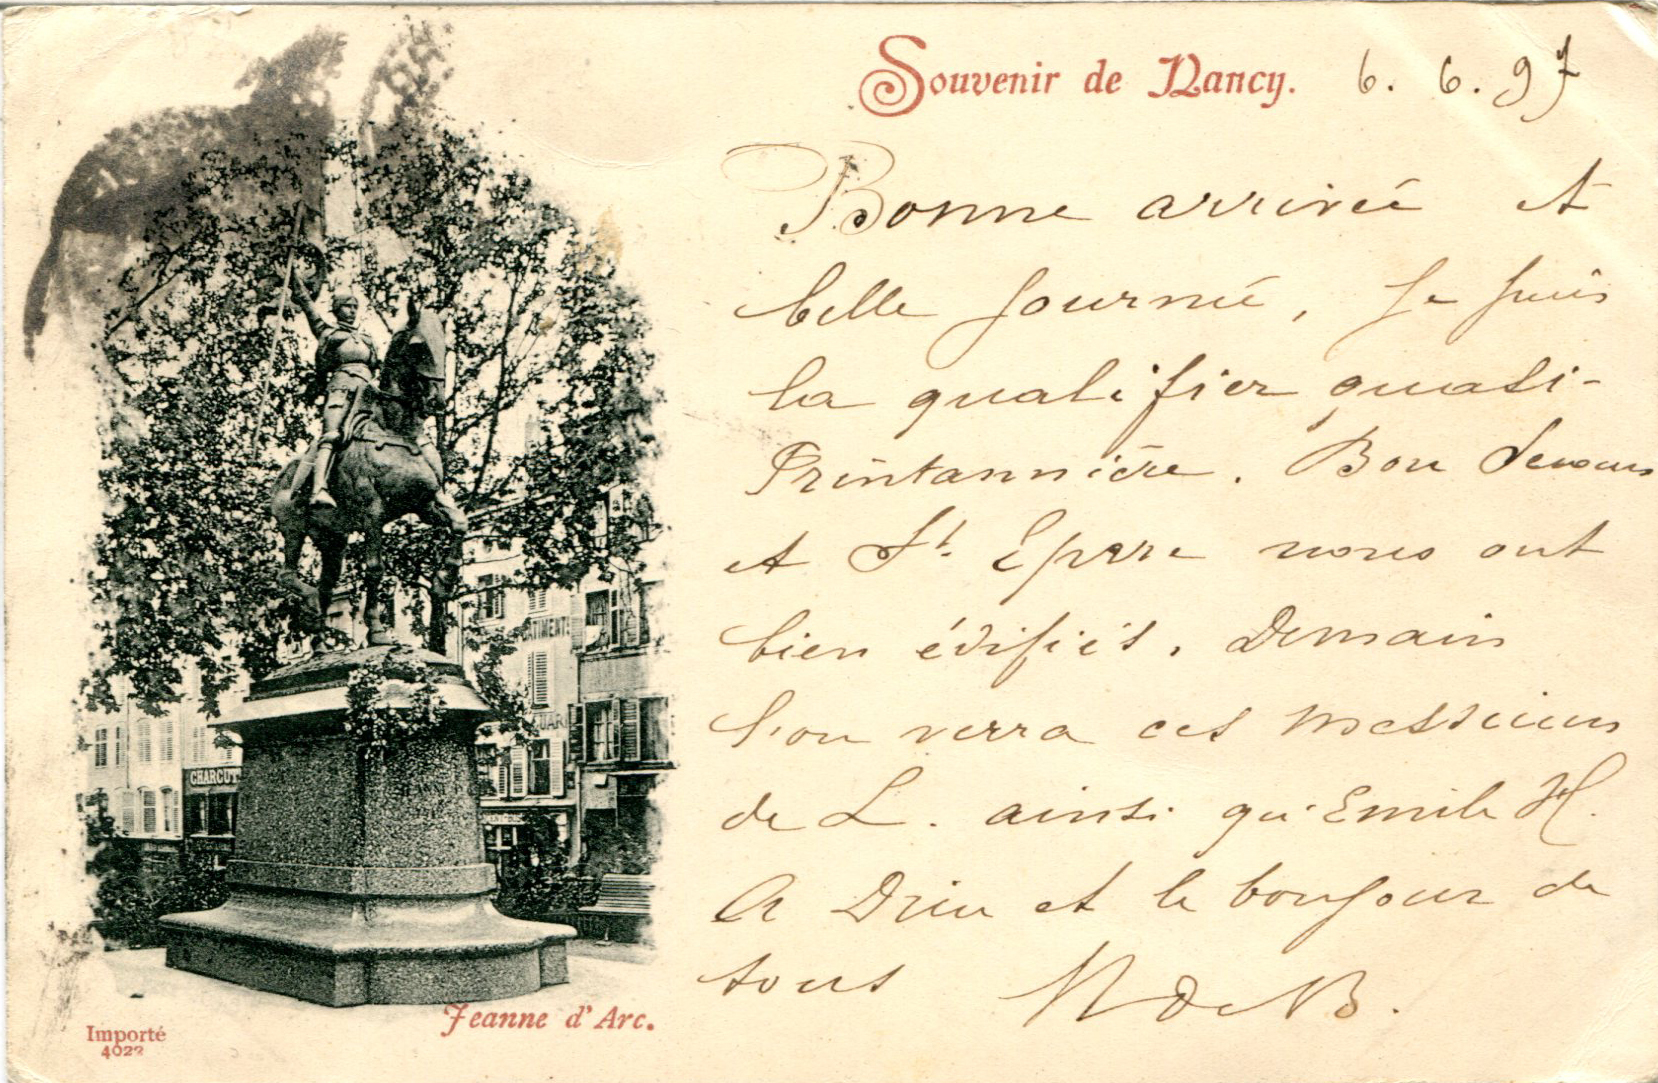 Souvenir de Nancy. 6. 6. 97
Bonne arrivée et
belle journée, je puis
la qualifier quasi-
Printannière. Bon Secours
et St. Epvre nous ont
bien édifiés. Demain
l'on verra ces messieurs
de L. ainsi qu'Emile H.
A Dieu et le bonjour de
tous N de B.
BATIMENTS
CHARCUT
JEANNE D'ARC
Jeanne d'Arc.
Importé
4022